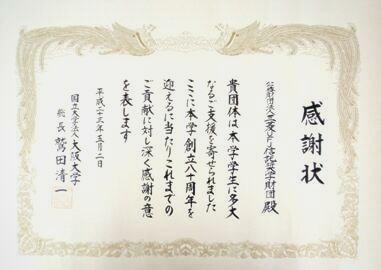 感謝状
公益財団法人三菱UFJ信託奨学財団 殿
貴団体は本学学生に多大
なるご支援を寄せられました
ここに本学創立八十周年を
迎えるに当たりこれまでの
ご貢献に対し深く感謝の意
を表します
平成二十三年五月二日
国立大学法人大阪大学
総長 鷲田清一